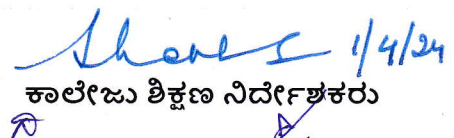 1/4/24
ಕಾಲೇಜು ಶಿಕ್ಷಣ ನಿರ್ದೇಶಕರು